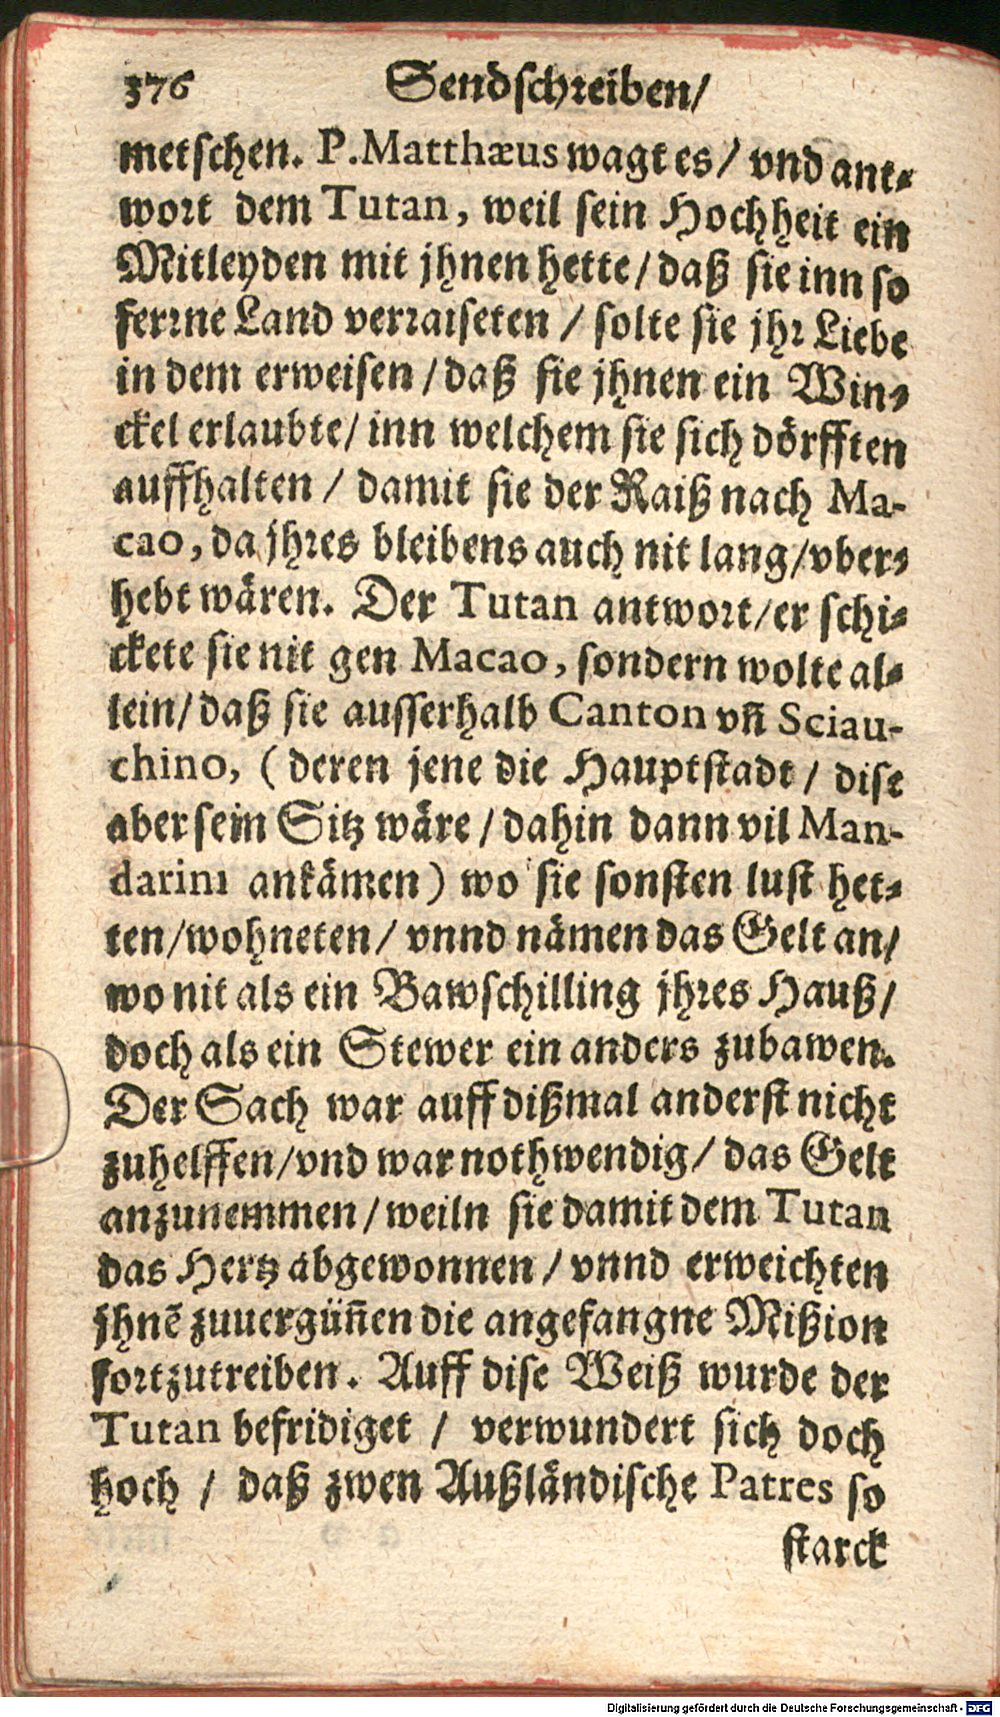 376 Sendschreiben/
metschen. P. Matthæus wagt es/ vnd ant-
wort dem Tutan, weil sein Hochheit ein
Mitleyden mit jhnen hette/ daß sie inn so
ferrne Land verraiseten / solte sie jhr Liebe
in dem erweisen / daß sie jhnen ein Win-
ckel erlaubte/ inn welchem sie sich dörfften
auffhalten / damit sie der Raiß nach Ma-
cao, da jhres bleibens auch nit lang/ vber-
hebt wären. Der Tutan antwort/ er schi-
ckete sie nit gen Macao, sondern wolte al-
lein/ daß sie ausserhalb Canton vñ Sciau-
chino, ( deren jene die Hauptstadt / dise
aber sein Sitz wäre / dahin dann vil Man-
darini ankämen) wo sie sonsten lust het-
ten/ wohneten/ vnnd nämen das Gelt an/
wo nit als ein Bawschilling jhres Hauß/
doch als ein Stewer ein anders zubawen.
Der Sach war auff dißmal anderst nicht
zuhelffen/ vnd war nothwendig/ das Gelt
anzunemmen / weiln sie damit dem Tutan
das Hertz abgewonnen / vnnd erweichten
jhnẽ zuuergüñen die angefangne Mißion
fortzutreiben. Auff dise Weiß wurde der
Tutan befridiget / verwundert sich doch
hoch / daß zwen Außländische Patres so
starck
Digitalisierung gefördert durch die Deutsche Forschungsgemeinschaft - DFG